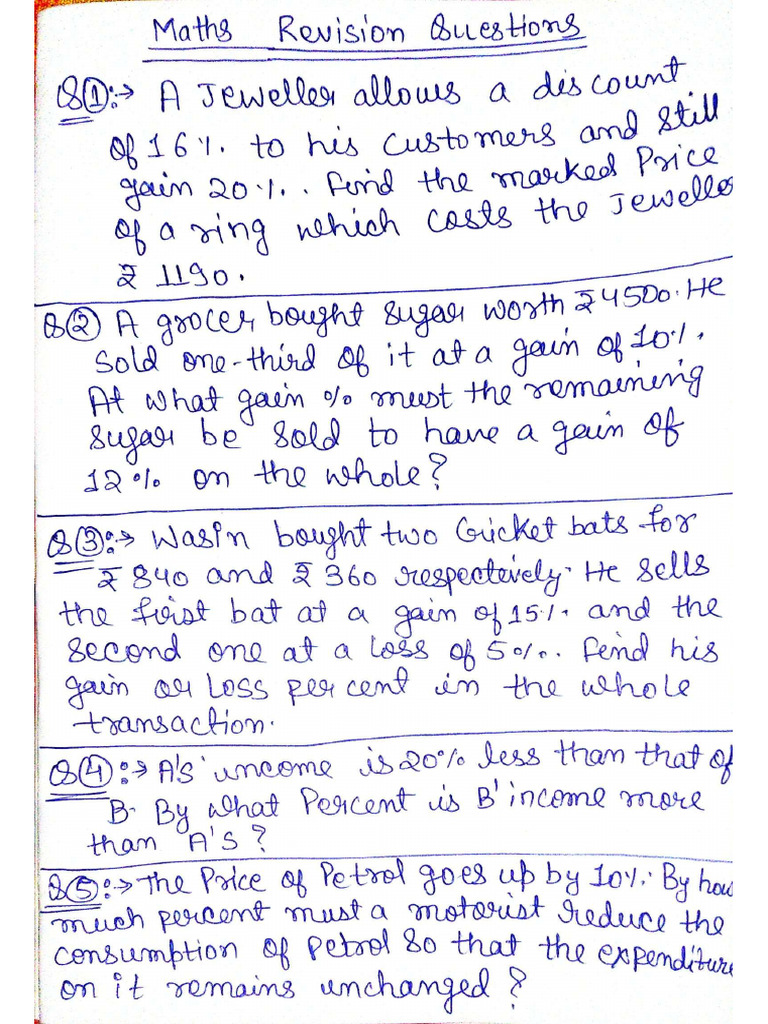 Maths Revision Questions
Q①:→ A Jeweller allows a discount
of 16%. to his customers and still
gain 20%.. Find the marked Price
of a ring which costs the Jeweller
₹ 1190.
Q② A grocer bought sugar worth ₹4500. He
sold one-third of it at a gain of 10%.
At what gain % must the remaining
sugar be sold to have a gain of
12% on the whole?
Q③:→ Wasin bought two Cricket bats for
₹ 840 and ₹ 360 respectively. He sells
the first bat at a gain of 15%. and the
second one at a loss of 5%. Find his
gain or loss per cent in the whole
transaction.
Q④:→ A's' income is 20% less than that of
B. By what Percent is B' income more
than A's?
Q⑤:→ The Price of Petrol goes up by 10%. By how
much percent must a motorist reduce the
consumption of Petrol so that the expenditure
on it remains unchanged?